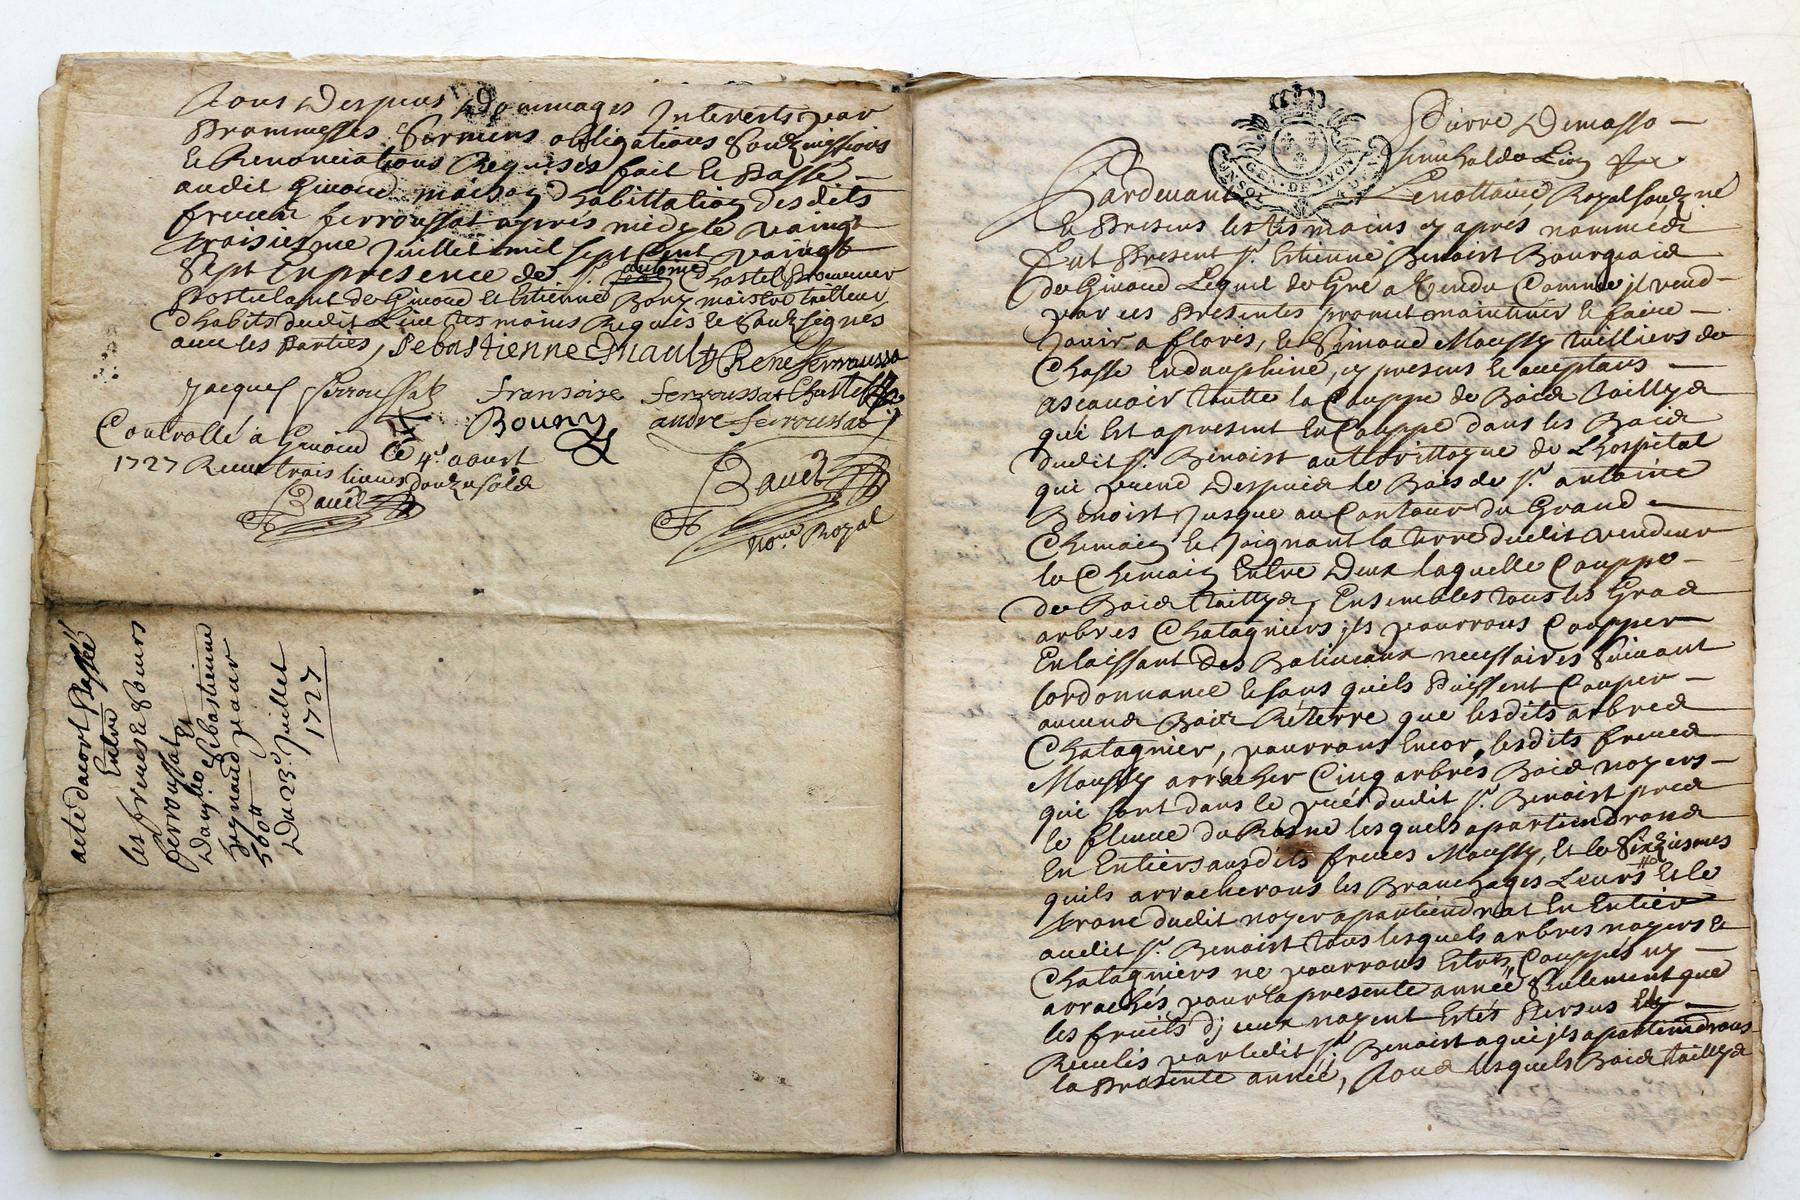 Tous Despens Dommages Interests par
Prommesses, Sermens obligations Soubmissions
Et Renonciations Requises fait Et Passé
audit Givord maison d'habittation des dits
freres ferroussat apres midy le vaingt
troisiesme Juillet mil sept Cent vaingt
Sept En presence de Sr. antoine Chastel Procureur
Postulant de Givord et Estienne Bony maistre tailleur
d'habits dudit Lieu tesmoins Requis Et Soubsignés
avec les Parties, Sebastienne René ferroussa
Jacques ferroussat fransoise ferroussat Chastel
Bouny andre ferroussat
Controllé à Givord Ce 4e aoust
1727 Receu trois livres douze sols
Bauet
Bauet
no.re Royal
acte dacort Passé
Entre
les freres & Soeurs
ferroussat Et
Sebastienne
pour
500tt
Du 23e Juillet
1727
GEN. DE LYON
Pierre Demasso
Pardevant Le nottaire Royal soubsigné
Et Presens les tesmoins cy apres nommés
fut Present Sr. Estienne Benoist Bourgeois
de Givord Lequel de Gré a Vendu Comme jl vend
par ces Presentes promet maintenir Et faire
Jouir a floris, Et Simond Moussy tuilliers de
Chasse En dauphiné, cy presens Et acceptans
ascavoir toutte la Couppe de Bois taillys
qui Est apresent En Couppe dans les Bois
dudit Sr. Benoist au territoire de Lhospital
qui prend Despuis le Bois de Sr. antoine
Benoist Jusque au Contour du Grand
Chemain Et Joignant la terre dudit vendeur
le Chemain Entre Deux laquelle Couppe
de Bois taillys, Ensembles tous les Gros
arbres Chatagniers jls pourrons Coupper
En laissant des Baliveaux necessaires Suivant
lordonnance Et sans quils Puissent Couper
aucuns Bois Reserve que lesdits arbres
Chatagnier, pourrons Encor, lesdits freres
Moussy arracher Cinq arbres Bois noyers
qui sont dans le pré dudit Sr. Benoist pres
le fleuve du Rosne lesquels apartiendrons
En Entiers ausdits freres Moussy, Et le Sixziesmes
quils arracherons les Branchages Leurs Et le
tronc dudit noyer apartiendrat En Entier
audit Sr. Benoist tous lesquels arbres noyers Et
Chatagniers ne pourrons Estres Couppés ny
arrachés pour la presente année Seulement que
les fruits dj ceux noyent Estés Persus Et
Reculis par ledit Sr. Benoist a qui jls apartiendrons
la Presente année, Tous lesquels Bois taillys